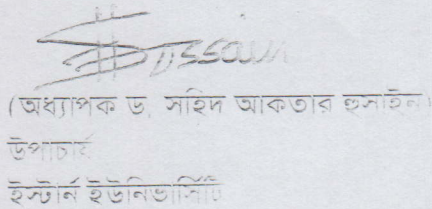 Hossain
(অধ্যাপক ড. সহিদ আকতার হুসাইন)
উপাচার্য
ইস্টার্ন ইউনিভার্সিটি